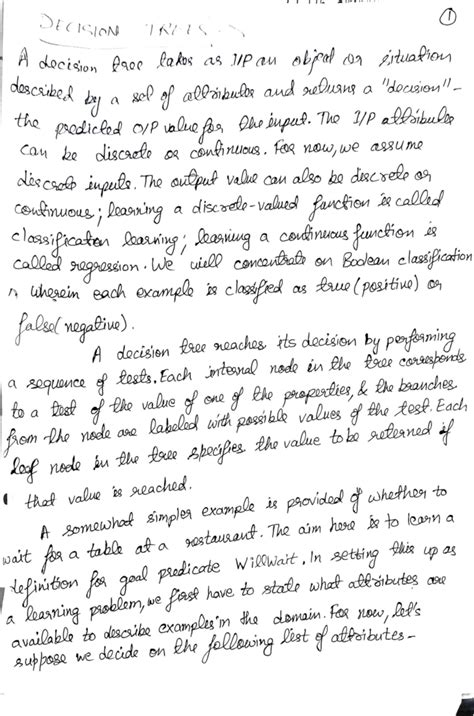 DECISION TREES
1
A decision tree takes as I/P an object or situation
described by a set of attributes and returns a "decision" -
the predicted O/P value for the input. The I/P attributes
can be discrete or continuous. For now, we assume
discrete inputs. The output value can also be discrete or
continuous; learning a discrete-valued function is called
classification learning; learning a continuous function is
called regression. We will concentrate on Boolean classification
wherein each example is classified as true (positive) or
false (negative).
A decision tree reaches its decision by performing
a sequence of tests. Each internal node in the tree corresponds
to a test of the value of one of the properties, & the branches
from the node are labeled with possible values of the test. Each
leaf node in the tree specifies the value to be returned if
that value is reached.
A somewhat simpler example is provided of whether to
wait for a table at a restaurant. The aim here is to learn a
definition for goal predicate WillWait. In setting this up as
a learning problem, we first have to state what attributes are
available to describe examples in the domain. For now, let's
suppose we decide on the following list of attributes -